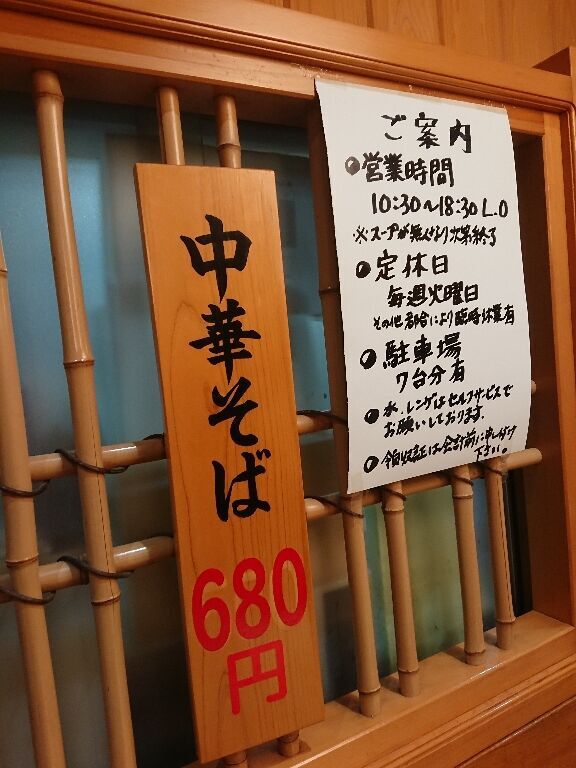 中華そば
680
円
ご案内
●営業時間
10:30〜18:30 L.O
※スープが無くなり次第終了
●定休日
毎週火曜日
その他都合により臨時休業有
●駐車場
7台分有
●水、レンゲはセルフサービスで
お願いしております。
●領収証は会計前に申し付け
下さい。